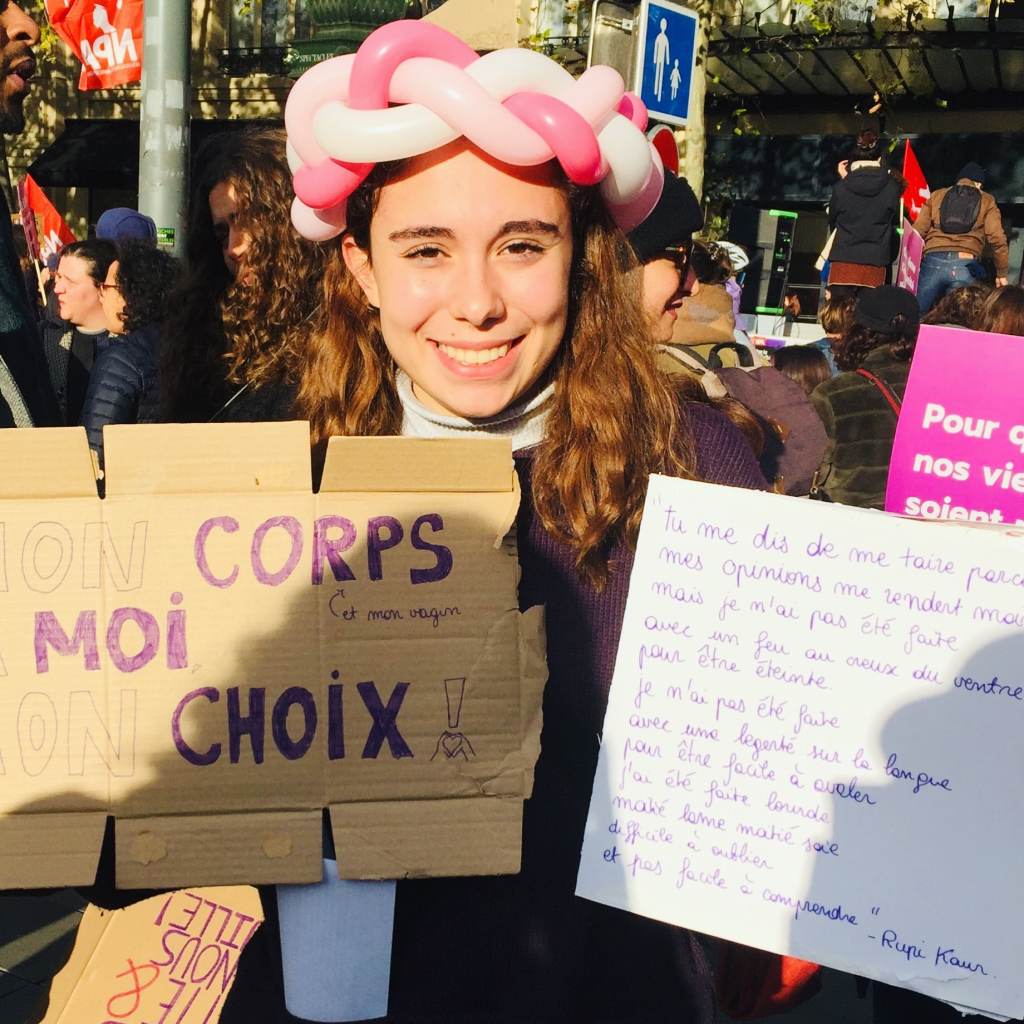 NPA
SPECTACLES
MON CORPS
et mon vagin
À MOI
MON CHOIX !
Pour q
nos vie
soient
"tu me dis de me taire parce
mes opinions me rendent mo
mais je n'ai pas été faite
avec un feu au creux du ventre
pour être éteinte.
Je n'ai pas été faite
avec une legerté sur la langue
pour être facile à avaler
j'ai été faite lourde
moitié lame moitié soie
difficile à oublier
et pas facile à comprendre"
- Rupi Kaur.
ILLE!
NOUS